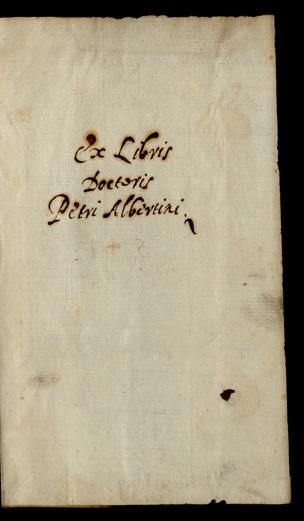 Ex Libris
Docteris
Petri Albertini.